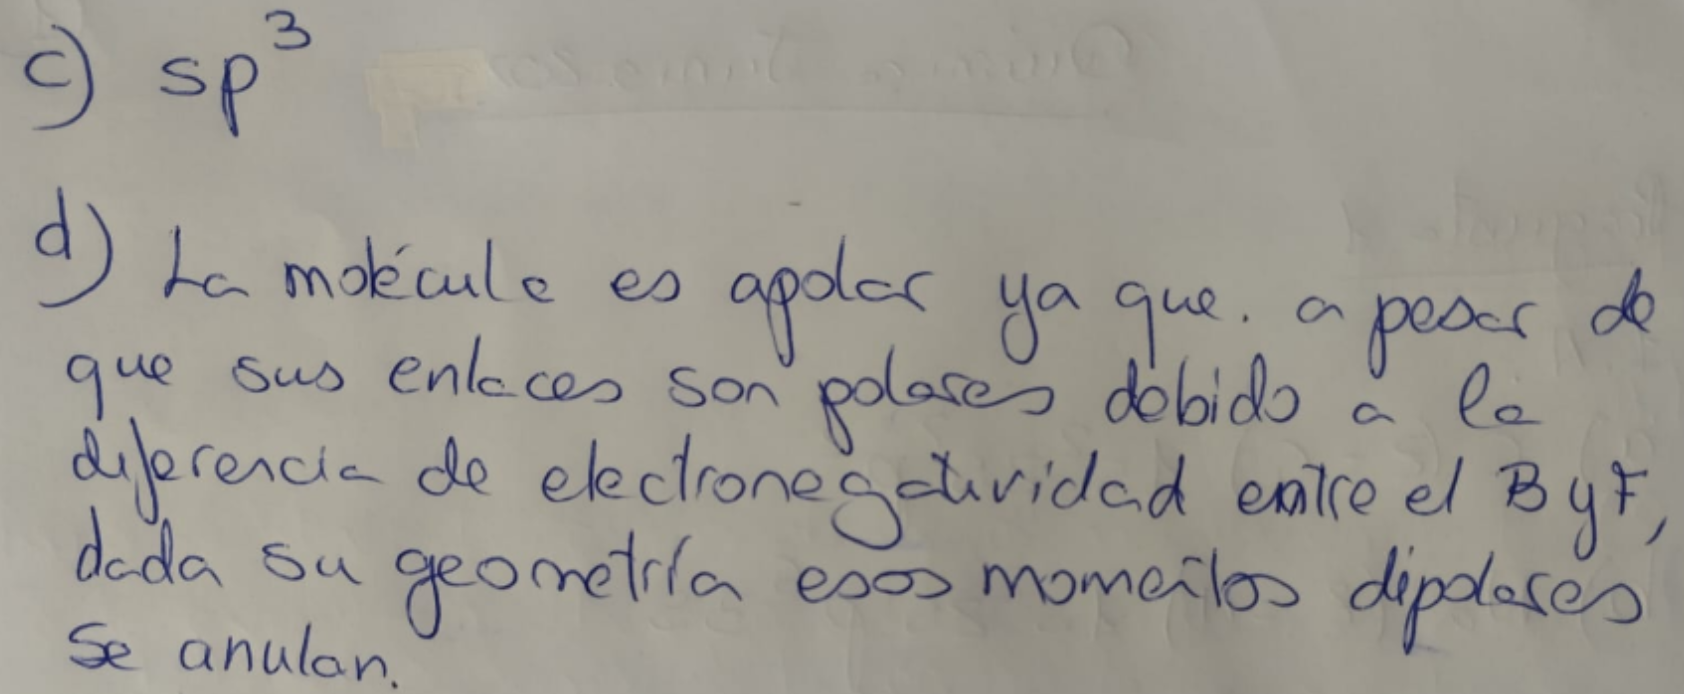 c) sp³
d) La molécula es apolar ya que. a pesar de
que sus enlaces son polares debido a la
diferencia de electronegatividad entre el B y F,
dada su geometría esos momentos dipolares
se anulan.